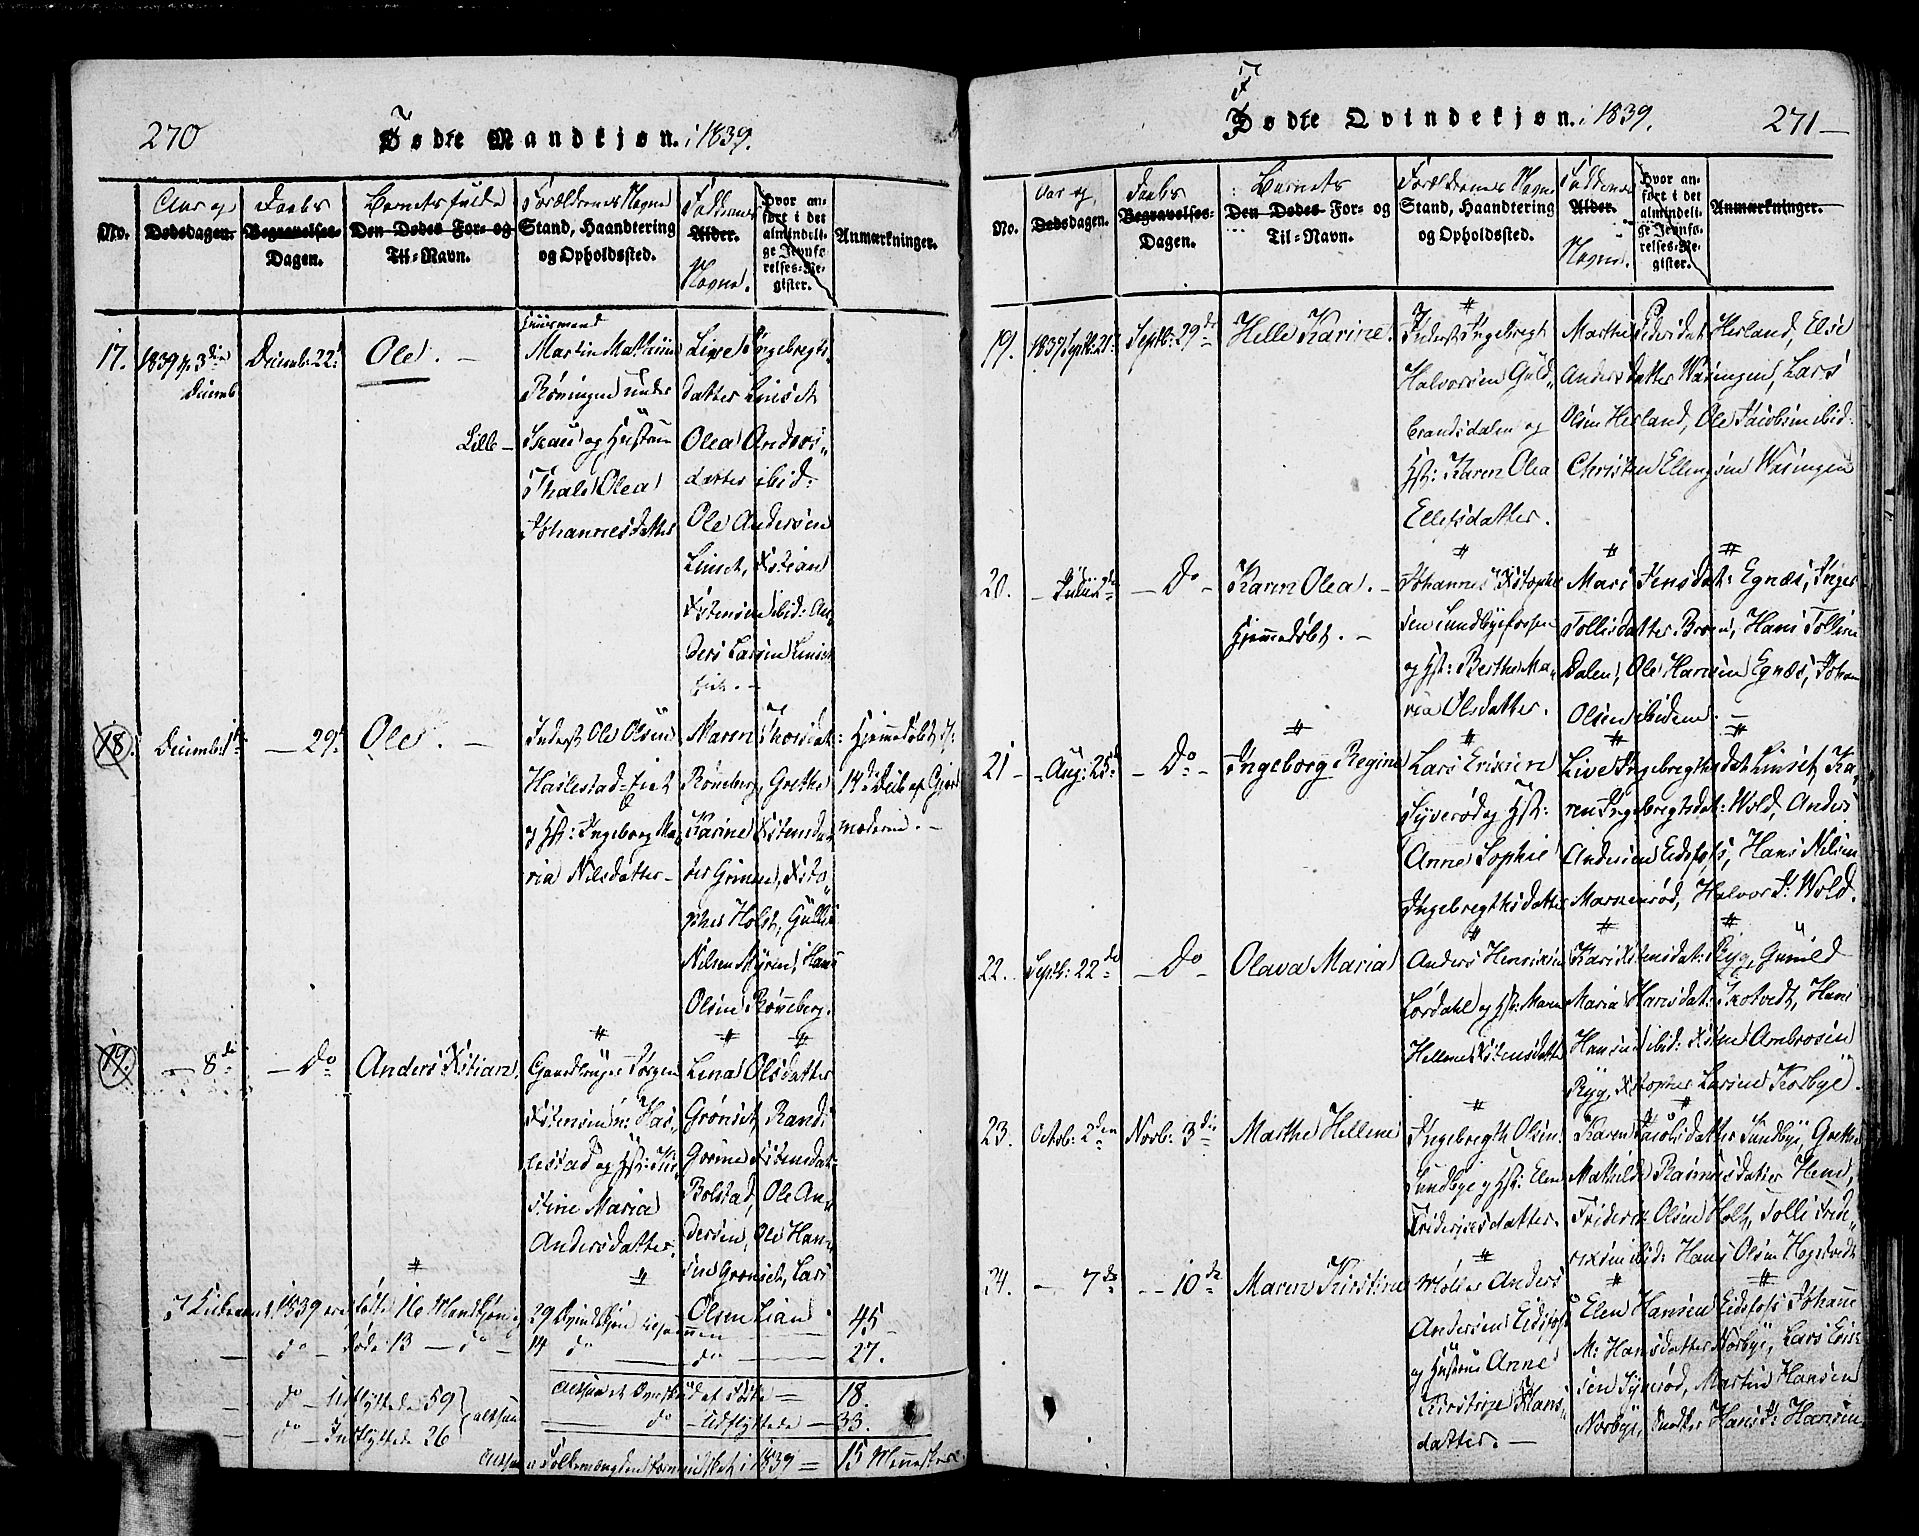 270
Fødte Mandkjøn. i 1839.
No.
Aar og
Dødsdagen.
Daabs
Begravelses-
Dagen.
Barnets fulde
Den Dødes For- og
Til-Navn.
Forældrenes Navne
Stand, Haandtering
og Opholdssted.
Faddernes
Alder.
Navne.
Hvor an-
ført i det
almindeli-
ge Jevnfø-
relses-Re-
gister.
Anmærkninger.
17.
1839 3die
Decemb
Decemb: 22
Ole. —
Huusmand
Martin Mathiis
Røningen under
Lille-
Skau og Hustrue
Thale Olea
Johannesdatter
Live Ingebregts
datter Linset
Olea Anders-
datter ibid:
Ole Andersen
Linset, Xstian
Xstensen ibid: An-
ders Larsen Linset
18.
Decemb: 1
— 29
Ole. —
Inderst Ole Olsen
Haslestad-Eiet
og Hst: Ingeborg Ma-
ria Nilsdatter -
Maren Thorsdat:
Røneberg, Grethe
Karine Xstensdat
ter Grimse, Xsto-
pher Holst, Gullu
Nilsen Myren, Hans
Olsen Røneberg.
Hjemmedøbt d.
14de Deceb af Gjord
moderen. —
19.
— 8de
— Do
Anders Xstian.
Gaardbruger Jørgen
Xstensen n: Has-
lestad og Hst: Kir-
stine Maria
Andersdatter.
Lena Olsdatter
Grønset, Randi
Gorine Xstensdat-
Bolstad, Ole An-
dersen, Ole Han-
sen Grønset, Lars
Olsen Lian.
I Kirkeaaret 1839 ere fødte 16 Mandkjøn og 29 Qvindekjøn tilsammen — 45
— do — døde 13 — do — 14 do — do — 27.
— do — Udflyttede 59
— do — Indflyttede 26
altsaa
Altsaa et Overskud af Fødte = 18.
— do — Udflyttede — 33.
Altsaa er Folkemængden formindsket i 1839 = 15 Mennesker.
F
Fødte Qvindekjøn. i 1839.
271 —
No.
Aar og
Dødsdagen.
Daabs
Begravelses-
Dagen.
Barnets
Den Dødes For- og
Til-Navn.
Forældrenes Navne
Stand, Haandtering
og Opholdssted.
Faddernes
Alder.
Navne.
Hvor an-
ført i det
almindeli-
ge Jevnfø-
relses-Re-
gister.
Anmærkninger.
19.
1839 Septb: 21
Septb: 29de
Helle Karine.
Inderst Ingebregt
Halvorsen Guld-
brandsdalen og
Hst: Karen Olea
Ellefsdatter.
Marthe Pedersdat Herland, Else
Andersdatter Wasingen, Lars
Olsen Herland, Ole Jacobsen ibid:
Christen Ellingsen Wasingen
20.
— Julii 2de
— Do —
Karen Olea. —
Hjemmedøbt. —
Johannes Xstopher
sen Sundbyefossen
og Hst: Berthe Ma-
ria Olsdatter.
Mari Jensdat: Egnæs, Inger
Tollisdatter Broen, Hans Tollisen
Dalen, Ole Hansen Egnæs, Johan
Olsen ibidem. —
21 —
— Aug: 25
— Do —
Ingeborg Regine
Lars Erixsen
Syverød og Hst:
Anne Sophie
Ingebregthsdatter
Live Ingebregthsdat Linset, Ka-
ren Ingebregtsdat: Wold, Anders
Andersen Eidsfoss, Hans Nilsen
Marnerød, Halvor J: Wold.
22.
Septb: 22de
— Do —
Olava Maria
Anders Henrixsen
Lørdahl og Hst: Maren
Hellene Xstensdatter
Kari Xstensdat: Ryg, Gunild
Maria Hansdat: Skotvedt, Hans
Hansen ibid: Xsten Ambrosen
Ryg, Xstopher Larsen Kosbye.
23.
Octob: 2den
Novb: 3die
Marthe Hellene
Ingebregth Olsen
Sundbye og Hst: Elen
Friderixsdatter.
Karen Jacobsdatter Sundbye, Grethe
Mathilde Rasmusdatter Hem,
Friderik Olsen Holt, Tolli Fride-
rixsen ibid: Hans Olsen Hogstvedt
24.
— 7de
— 10de
Maren Kirstine
Møller Anders
Andersen Eidsfoss
og Hustrue Anne
Kirstine Hans-
datter. —
Elen Hansen Eidsfoss Johanne
M: Hansdatter Norbye, Lars Erix-
sen Syverød, Martin Hansen
Norbye, Hans J: Hansen